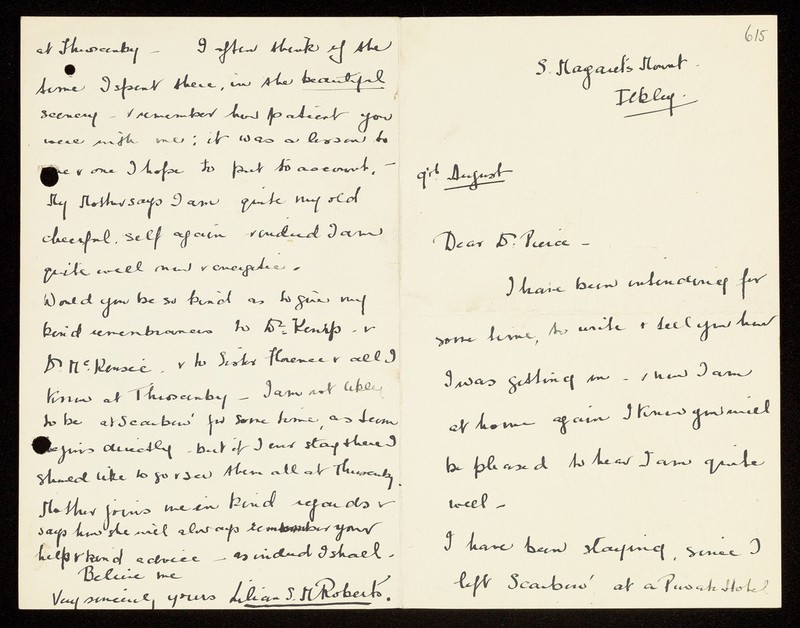 615
S. Magaret's Mount.
Ilkley.
9th August
Dear Dr. Pierce -
I have been intending for
some time, to write & tell you how
I was getting on - & now I am
at home again I know you will
be pleased to hear I am quite
well -
I have been staying, since I
left Scarboro' at a Private Hotel
at Thurcanby - I often think of the
time I spent there, in the beautiful
scenery - & remember how patient you
were with me; it was a lesson to
me & one I hope to put to account. -
My Mother says I am quite my old
cheerful self again & indeed I am
quite well now & energetic.
Would you be so kind as to give my
kind remembrances to Dr. Kemp - &
Dr. McKensie, & to Sister Florence & all I
know at Throxenby - I am not likely
to be at Scarboro' for some time, as term
begins directly - but if I ever stay there I
should like to go & see them all at Throxenby.
Mother joins me in kind regards &
says how she will always remember your
help & kind advice - as indeed I shall.
Believe me
Very sincerely yours Lilian S. M Roberts.